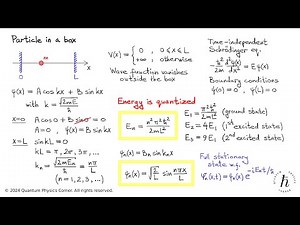 Particle in a box
V(x) = { 0 , 0 ≤ x ≤ L
+∞ , otherwise
Wave function vanishes
outside the box
Time-independent
Schrödinger eq.
-ħ²/2m d²ψ(x)/dx² = Eψ(x)
Boundary conditions
ψ(0) = 0 , ψ(L) = 0
0 L x
ψ(x) = A cos kx + B sin kx
with k = √(2mE)/ħ
x=0 A cos 0 + B sin 0 = 0
A = 0
ψ(x) = B sin kx
x=L sin kL = 0
kL = π, 2π, 3π, ...
kₙ = √(2mEₙ)/ħ = nπ/L
(n = 1, 2, 3, ...)
Energy is quantized
Eₙ = n²π²ħ²/2mL²
E₁ = π²ħ²/2mL² (ground state)
E₂ = 4E₁ (1st excited state)
E₃ = 9E₁ (2nd excited state)
ψₙ(x) = Bₙ sin kₙx
ψₙ(x) = √(2/L) sin nπx/L
Full stationary
state w.f.
Ψₙ(x,t) = ψₙ(x) e^(-iEₙt/ħ)
© 2024 Quantum Physics Corner. All rights reserved.
ħ